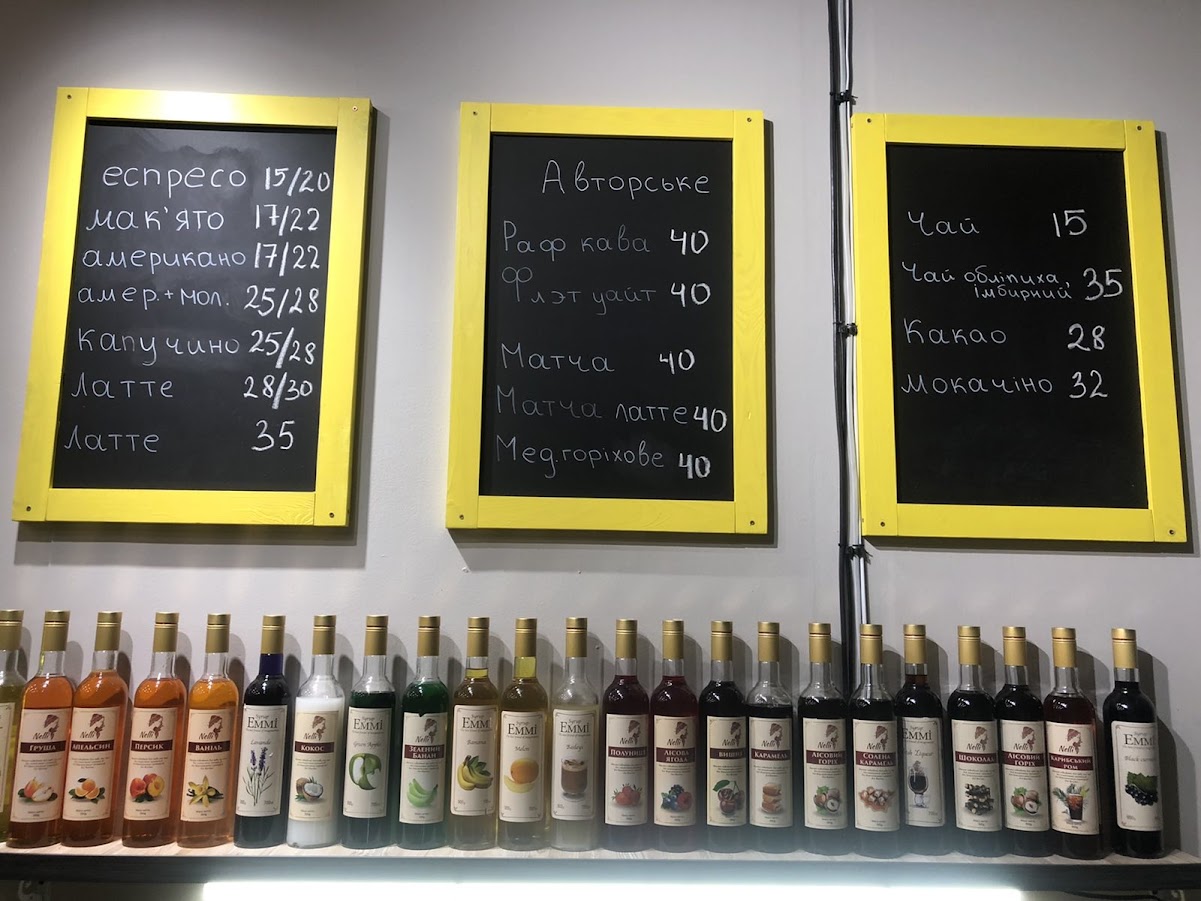 еспресо 15/20
мак'ято 17/22
американо 17/22
амер.+мол. 25/28
капучино 25/28
латте 28/30
латте 35
Авторське
Раф кава 40
Флэт уайт 40
Матча 40
Матча латте 40
Мед.горіхове 40
Чай 15
Чай обліпиха, 35
імбирний
Какао 28
мокачіно 32
Nelli
ГРУША
Nelli
АПЕЛЬСИН
Nelli
ПЕРСИК
Nelli
ВАНІЛЬ
Syrup
EMMI
Lavanda
Nelli
КОКОС
Syrup
EMMI
Green Apple
Nelli
ЗЕЛЕНИЙ
БАНАН
Syrup
EMMI
Banana
Syrup
EMMI
Melon
Syrup
EMMI
Baileys
Nelli
ПОЛУНИЦЯ
Nelli
ЛІСОВА
ЯГОДА
Nelli
ВИШНЯ
Nelli
КАРАМЕЛЬ
Nelli
ЛІСОВИЙ
ГОРІХ
Nelli
СОЛЕНА
КАРАМЕЛЬ
Syrup
EMMI
Nelli
ШОКОЛАД
Nelli
ЛІСОВИЙ
ГОРІХ
Nelli
КАРИБСЬКИЙ
РОМ
Syrup
EMMI
Black currant